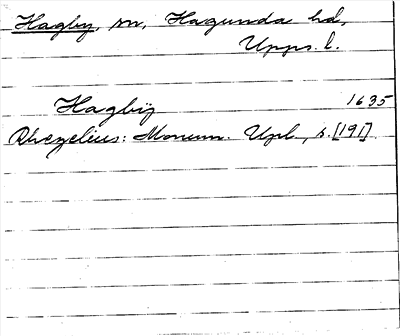 Hagby, sn, Hagunda hd,
Upps. l.
Hagbÿ 1635
Rhezelius: Monum. Upl., s. [191]